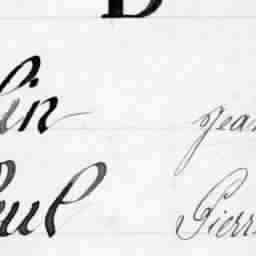 D
lin Jean
aul Pierr